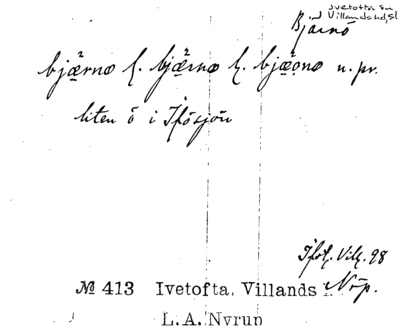 Ivetofta sn,
Villands hd, Sk
Bjärnö
bjærnə l. bjærnə l. bjæɔnə n. pr.
liten ö i Ifösjön
98
№ 413 Ivetofta, Villands
L. A. Nyrup